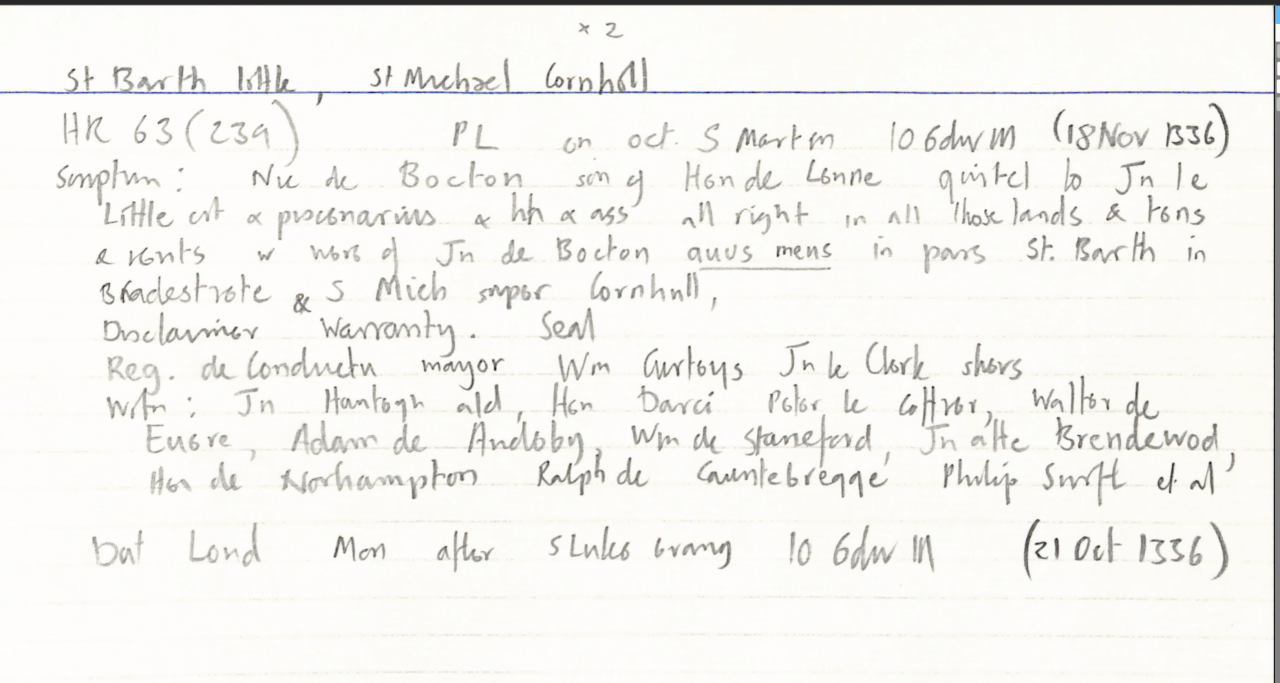 x 2
St Barth little, St Michael Cornhill
HR 63 (239) PL on oct. S Martin 10 Edw III (18 Nov 1336)
Scriptum: Nic de Bocton son of Hen de Lenne quitcl to Jn le
Little cit & piscenarius & hh & ass all right in all those lands & tens
& rents w were of Jn de Bocton avus meus in pars St. Barth in
Bradestrete & S Mich super Cornhull,
Disclaimer Warranty. Seal
Reg. de Conductu mayor Wm Curteys Jn le Clerk shers
Witn: Jn Hamtogn ald, Hen Darci Peter le Coffrer, Walter de
Euere, Adam de Andeby, Wm de Staneford, Jn atte Brendewod,
Hen de Norhampton Ralph de Cauntebregge Philip Swift et al
Dat Lond Mon after S Lukes evang 10 Edw III (21 Oct 1336)